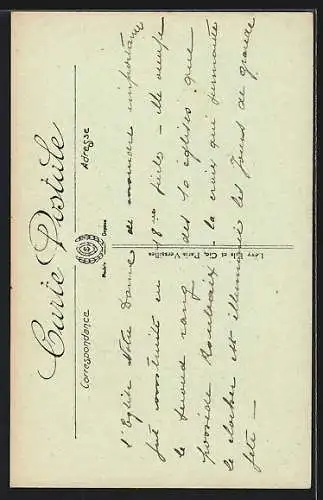 Carte Postale
Correspondance
Adresse
Modèle Déposé
Lévy Fils et Cie, Paris-Versailles
l'Eglise Notre Dame de moindre importance
fut construite au 18ème siècle - elle occupe
le second rang des 10 églises que
possède Roubaix - la croix qui surmonte
le clocher est illuminée les jours de grande
fête -